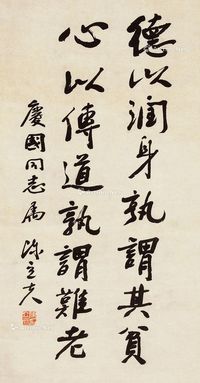 德以润身孰謂其貧
心以傳道孰謂難老
慶國同志屬
陳立夫